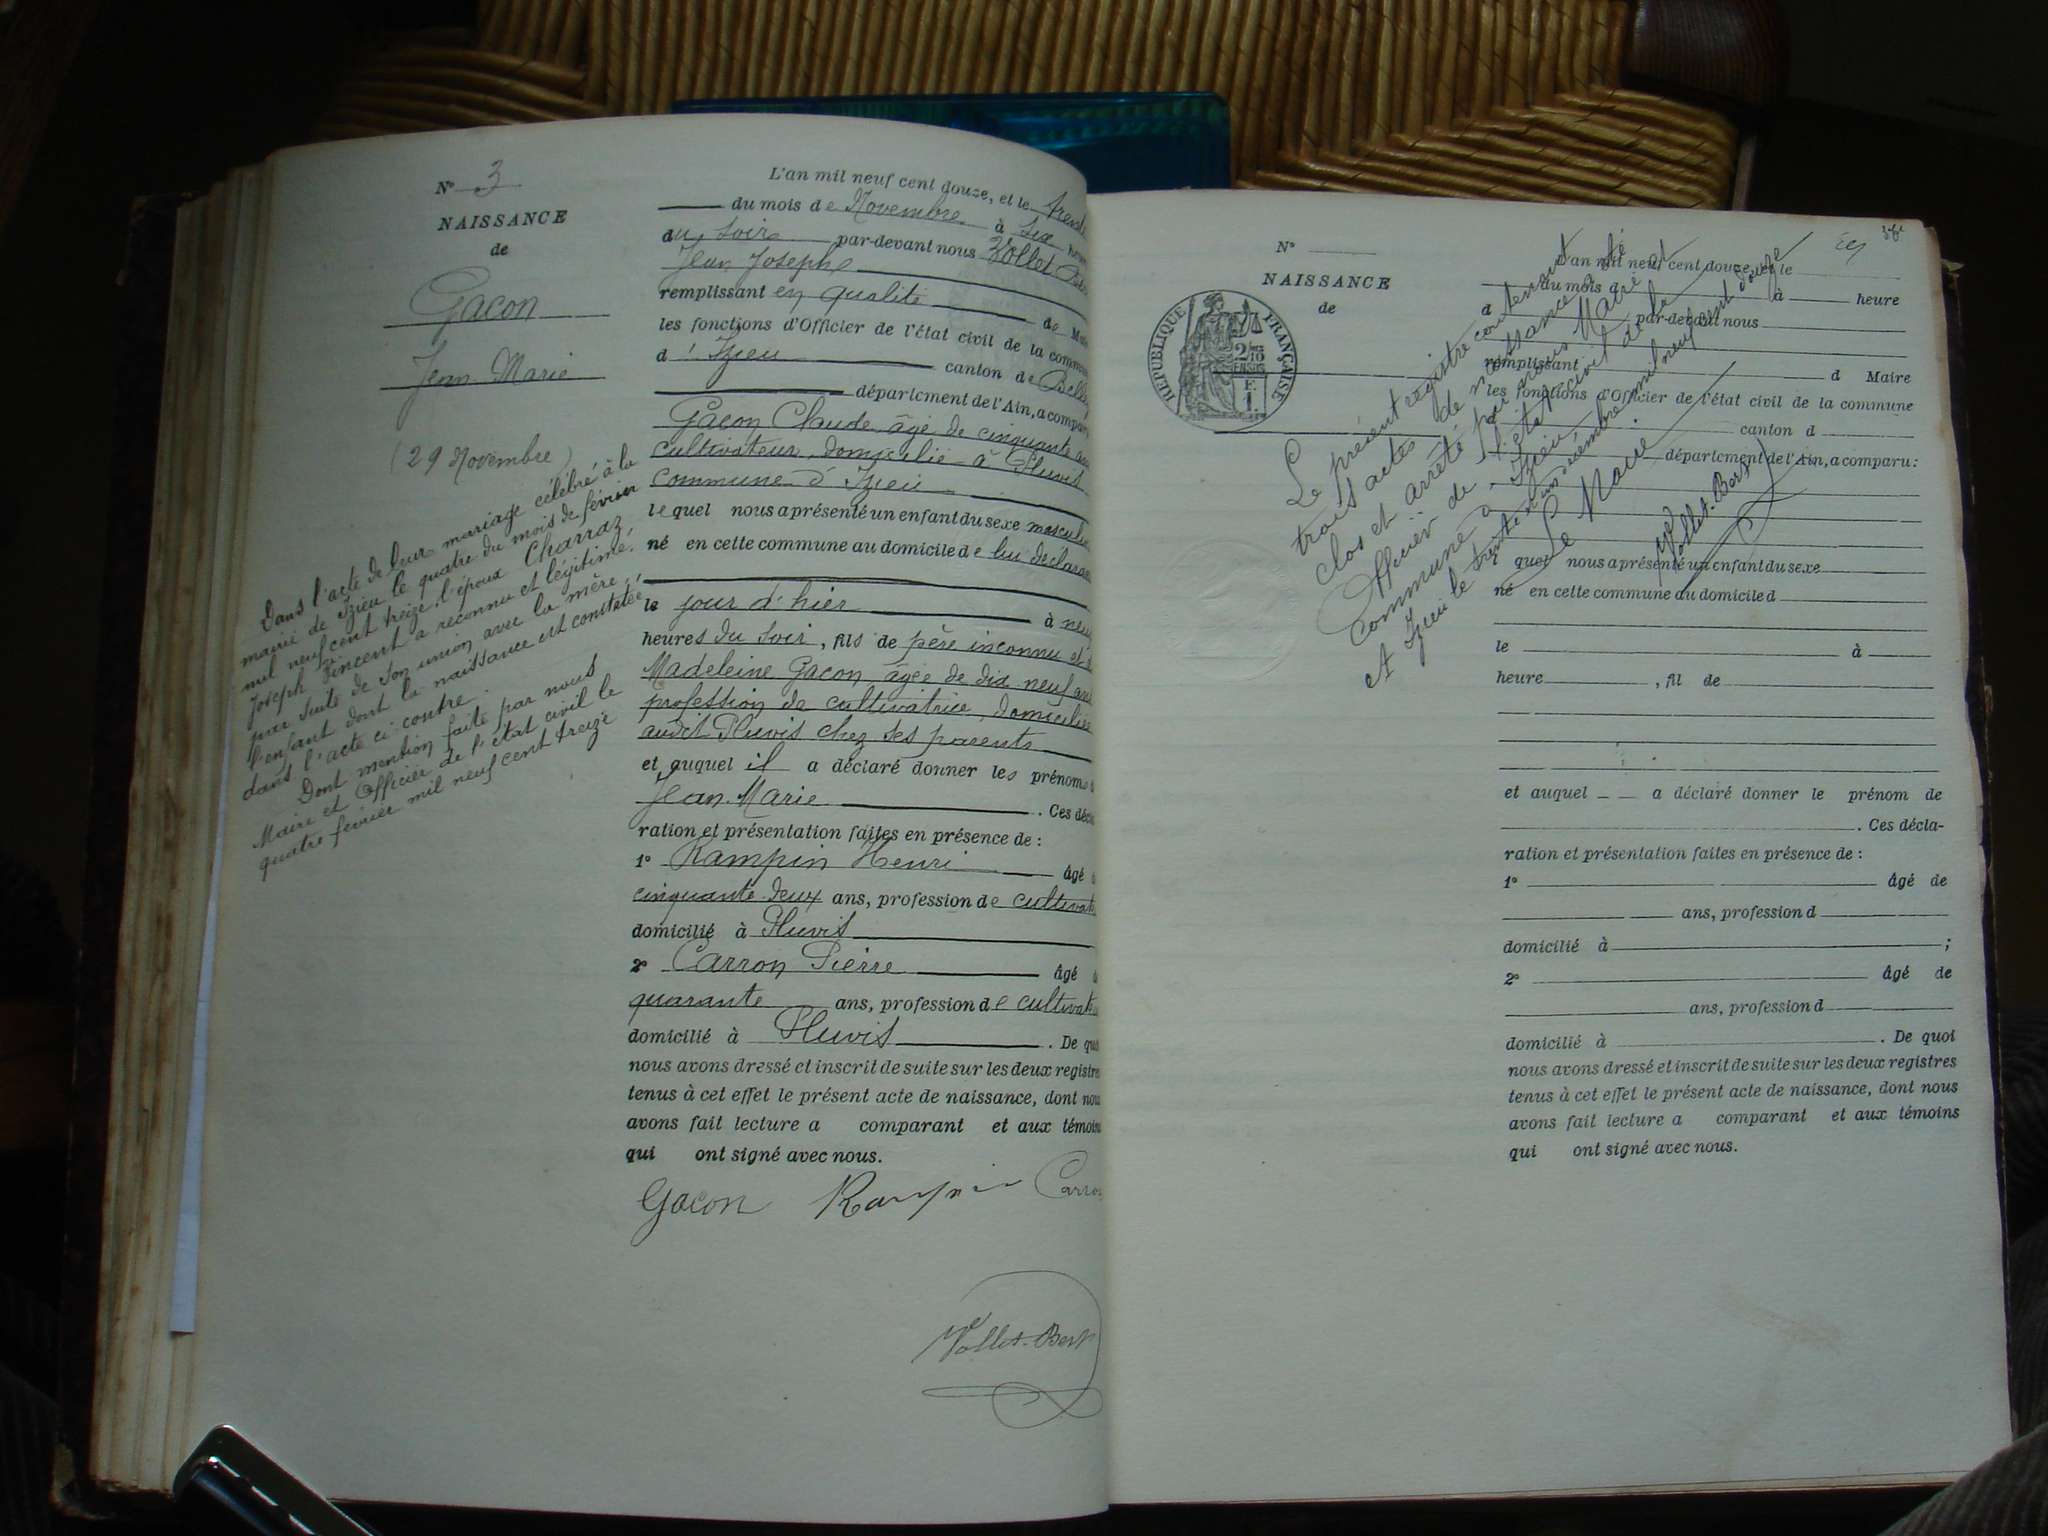 N° 3
NAISSANCE
de
Gacon
Jean Marie
(29 Novembre)
Dans l'acte de leur mariage célébré à la
mairie de Izieu le quatre du mois de février
mil neuf cent treize, l'époux Charraz
Joseph Vincent a reconnu et légitimé,
par suite de son union avec la mère,
l'enfant dont la naissance est constatée
dans l'acte ci-contre.
Dont mention faite par nous
Maire et Officier de l'état civil le
quatre février mil neuf cent treize
L'an mil neuf cent douze, et le trente
du mois de Novembre à six heu
du soir par-devant nous Vollet Ber
Jean Joseph
remplissant en qualité de Mai
les fonctions d'Officier de l'état civil de la commun
d'Izieu canton de Belle
département de l'Ain, a comparu
Gacon Claude âgé de cinquante ans
cultivateur, domicilié à Pluvis
commune d'Izieu
lequel nous a présenté un enfant du sexe masculin
né en cette commune au domicile de lui déclarant
le jour d'hier à neuf
heures du soir, fils de père inconnu et d
Madeleine Gacon, âgée de dix neuf ans
profession de cultivatrice, domiciliée
audit Pluvis chez ses parents
et auquel il a déclaré donner les prénoms d
Jean Marie. Ces décla
ration et présentation faites en présence de :
1° Rampin Henri âgé d
cinquante deux ans, profession de cultivat
domicilié à Pluvis
2° Carron Pierre âgé d
quarante ans, profession de cultivat
domicilié à Pluvis. De quoi
nous avons dressé et inscrit de suite sur les deux registres
tenus à cet effet le présent acte de naissance, dont nous
avons fait lecture a comparant et aux témoins
qui ont signé avec nous.
Gacon Rampin Carron
Vollet-Bert
N°
NAISSANCE
de
RÉPUBLIQUE FRANÇAISE
2/10
EN SUS
F.
1.
Le présent registre contenant
trois actes de naissance a été
clos et arrêté par nous Maire et
Officier de l'état civil de la
commune d'Izieu
A Izieu le trente un décembre mil neuf cent douze
Le Maire
Vollet-Bert
L'an mil neuf cent douze, et le
du mois d à heure
d par-devant nous
remplissant d Maire
les fonctions d'Officier de l'état civil de la commune
canton d
département de l'Ain, a comparu :
quel nous a présenté un enfant du sexe
né en cette commune au domicile d
le à
heure , fil de
et auquel a déclaré donner le prénom de
. Ces décla-
ration et présentation faites en présence de :
1° âgé de
ans, profession d
domicilié à ;
2° âgé de
ans, profession d
domicilié à . De quoi
nous avons dressé et inscrit de suite sur les deux registres
tenus à cet effet le présent acte de naissance, dont nous
avons fait lecture a comparant et aux témoins
qui ont signé avec nous.